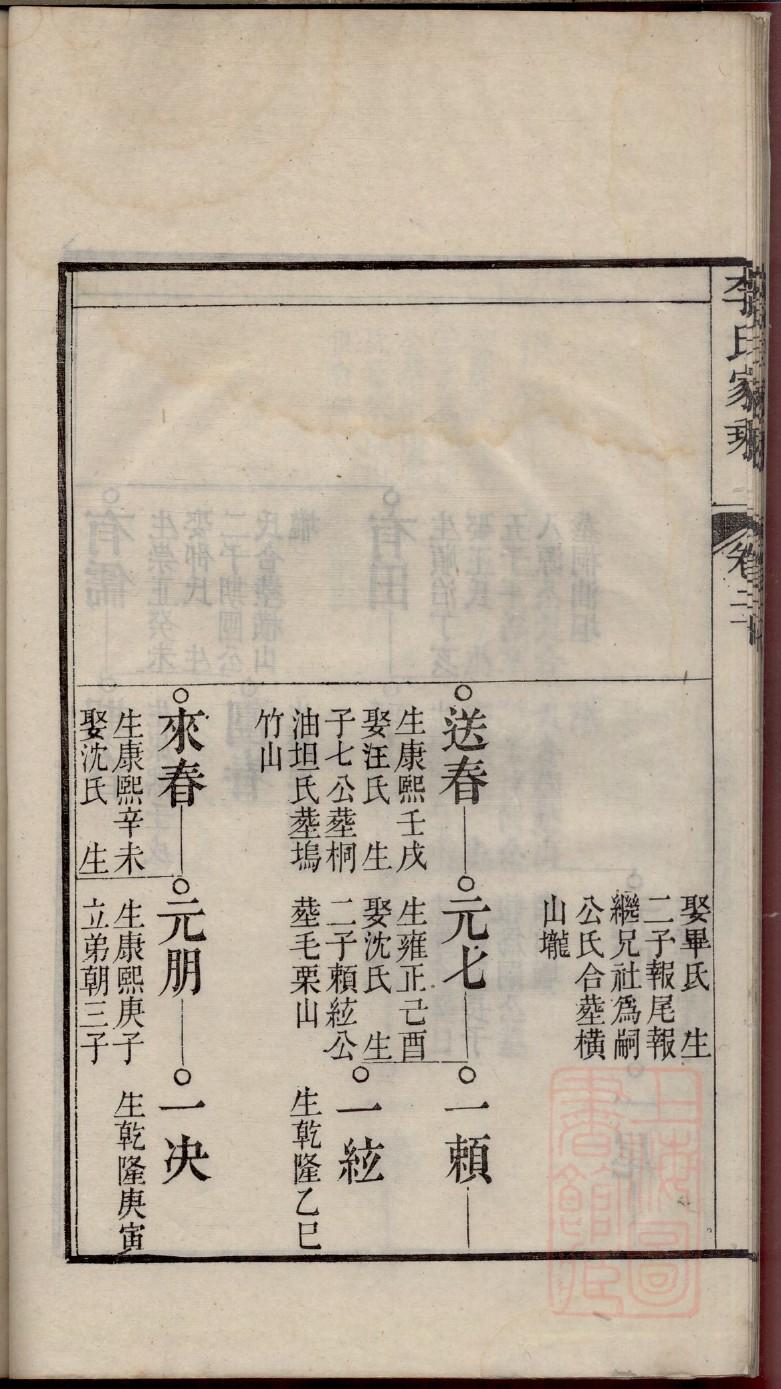 李氏家乘
卷二
娶畢氏　生
二子報尾報
繼兄社爲嗣
公氏合塟橫
山壠
送春
生康熙壬戌
娶汪氏　生
子七公塟桐
油坦氏塟塢
竹山
元七
生雍正己酉
娶沈氏　生
二子賴絃公
塟毛栗山
一賴
一絃
生乾隆乙巳
來春
生康熙辛未
娶沈氏　生
元朋
生康熙庚子
立弟朝三子
一決
生乾隆庚寅